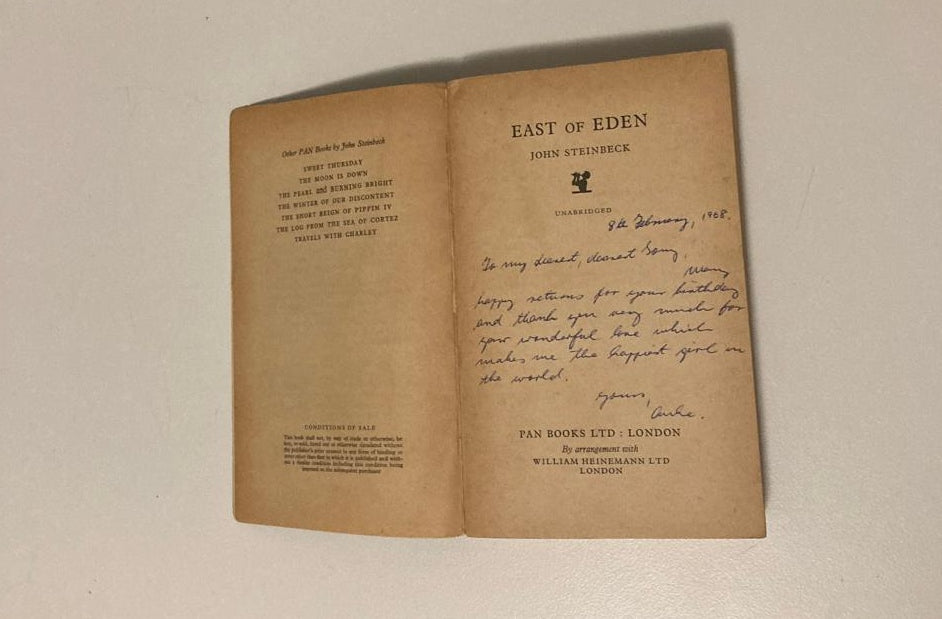 Other PAN Books by John Steinbeck
SWEET THURSDAY
THE MOON IS DOWN
THE PEARL and BURNING BRIGHT
THE WINTER OF OUR DISCONTENT
THE SHORT REIGN OF PIPPIN IV
THE LOG FROM THE SEA OF CORTEZ
TRAVELS WITH CHARLEY
CONDITIONS OF SALE
This book shall not, by way of trade or otherwise, be
lent, re-sold, hired out or otherwise circulated without
the publisher's prior consent in any form of binding or
cover other than that in which it is published and with-
out a similar condition including this condition being
imposed on the subsequent purchaser
EAST OF EDEN
JOHN STEINBECK
UNABRIDGED
8th February, 1968.
To my dearest, dearest
Many
happy returns for your birthday
and thank you very much for
your wonderful love which
makes me the happiest girl in
the world.
Yours,
PAN BOOKS LTD : LONDON
By arrangement with
WILLIAM HEINEMANN LTD
LONDON